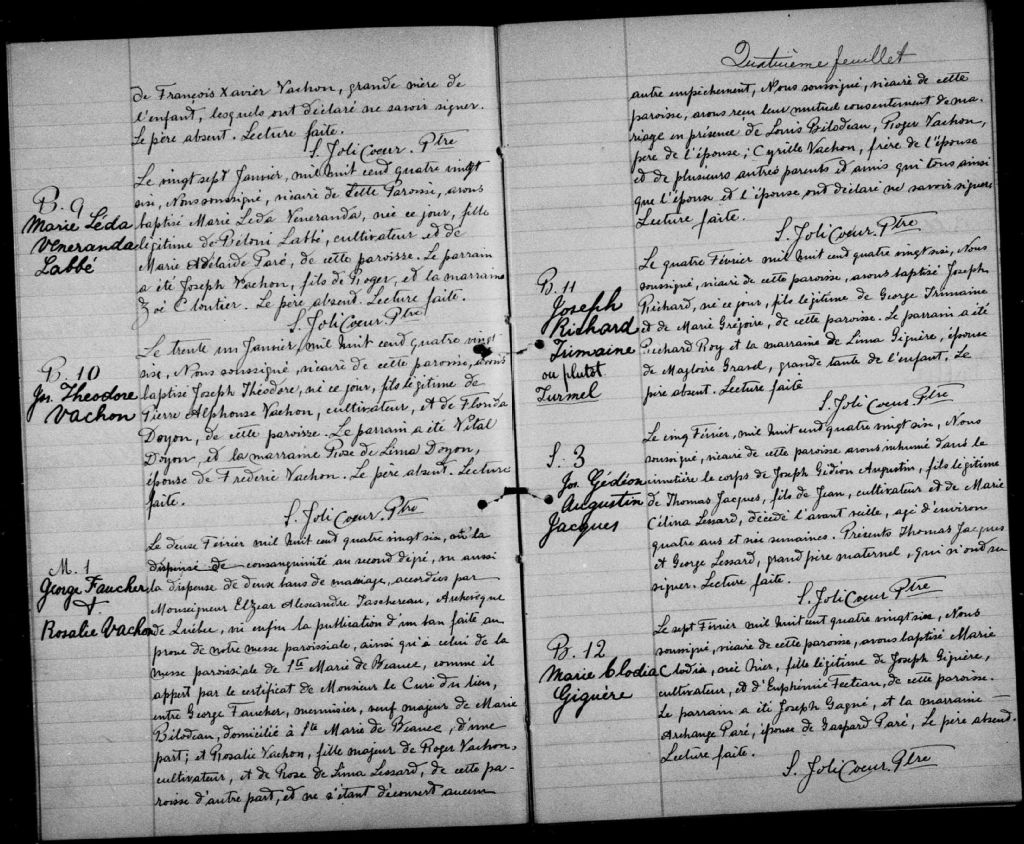 de François Xavier Vachon, grande mère de
l'enfant, lesquels ont déclaré ne savoir signer.
Le père absent. Lecture faite.
S. JoliCoeur. Ptre
B. 9
Marie Léda
Veneranda
Labbé
Le vingt sept Janvier, mil huit cent quatre vingt
six, Nous soussigné, vicaire de cette Paroisse, avons
baptisé Marie Léda Veneranda, née ce jour, fille
légitime de Béloni Labbé, cultivateur et de
Marie Adélaide Paré, de cette paroisse. Le parrain
a été Joseph Vachon, fils de Roger, et la marraine
Zoé Cloutier. Le père absent. Lecture faite.
S. JoliCoeur Ptre
B. 10
Jos. Theodore
Vachon
Le trente un Janvier, mil huit cent quatre vingt
six, Nous soussigné, vicaire de cette paroisse, avons
baptisé Joseph Théodore, né ce jour, fils légitime de
Pierre Alphonse Vachon, cultivateur, et de Florida
Doyon, de cette paroisse. Le parrain a été Vital
Doyon, et la marraine Rose de Lima Doyon,
épouse de Frédéric Vachon. Le père absent. Lecture
faite.
S. JoliCoeur. Ptre
M. 1
George Faucher
+
Rosalie Vachon
Le deux Février mil huit cent quatre vingt six, vu la
dispense de consanguinité au second dégré, vu aussi
la dispense de deux bans de mariage, accordées par
Monseigneur Elzear Alexandre Taschereau, Archevêque
de Québec, vu enfin la publication d'un ban faite au
prone de notre messe paroissiale, ainsi qu'à celui de la
messe paroissiale de Ste Marie de Beauce, comme il
appert par le certificat de Monsieur le Curé du lieu,
entre George Faucher, menuisier, veuf majeur de Marie
Bilodeau, domicilié à Ste Marie de Beauce, d'une
part; et Rosalie Vachon, fille majeur de Roger Vachon,
cultivateur, et de Rose de Lima Lessard, de cette pa-
roisse d'autre part, et ne s'étant découvert aucun
Quatrième feuillet
autre empêchement, Nous soussigné, vicaire de cette
paroisse, avons reçu leur mutuel consentement de ma-
riage en présence de Louis Bilodeau, Roger Vachon,
père de l'épouse; Cyrille Vachon, frère de l'épouse
et de plusieurs autres parents et amis qui tous ainsi
que l'époux et l'épouse ont déclaré ne savoir signer.
Lecture faite.
S. JoliCoeur. Ptre
B. 11
Joseph
Richard
Trimaine
ou plutot
Turmel
Le quatre Février mil huit cent quatre vingt six, Nous
soussigné, vicaire de cette paroisse, avons baptisé Joseph
Richard, né ce jour, fils légitime de George Trimaine
et de Marie Grégoire, de cette paroisse. Le parrain a été
Richard Roy et la marraine de Lima Giguère, épouse
de Magloire Gravel, grande tante de l'enfant. Le
père absent. Lecture faite
S. JoliCoeur Ptre
S. 3
Jos. Gédéon
Augustin
Jacques
Le cinq Février, mil huit cent quatre vingt six, Nous
soussigné, vicaire de cette paroisse avons inhumé dans le
cimetière le corps de Joseph Gédéon Augustin, fils légitime
de Thomas Jacques, fils de Jean, cultivateur et de Marie
Célina Lessard, décédé l'avant veille, agé d'environ
quatre ans et six semaines. Présents Thomas Jacques
et George Lessard, grand père maternel, qui n'ont su
signer. Lecture faite.
S. JoliCoeur Ptre
B. 12
Marie Clodia
Giguère
Le sept Février mil huit cent quatre vingt six, Nous
soussigné, vicaire de cette paroisse, avons baptisé Marie
Clodia, née hier, fille légitime de Joseph Giguère,
cultivateur, et d'Euphémie Fecteau, de cette paroisse.
Le parrain a été Joseph Gagné, et la marraine
Archange Paré, épouse de Gaspard Paré, Le père absent.
Lecture faite.
S. JoliCoeur Ptre